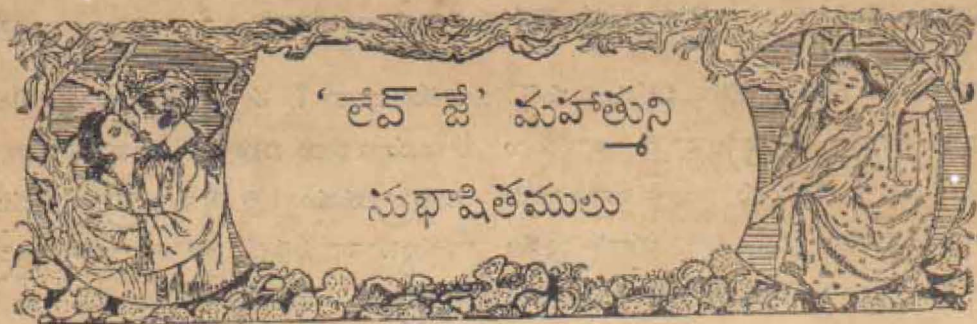 ‘ లేవ్ జే ’ మహాత్ముని
సుభాషితములు